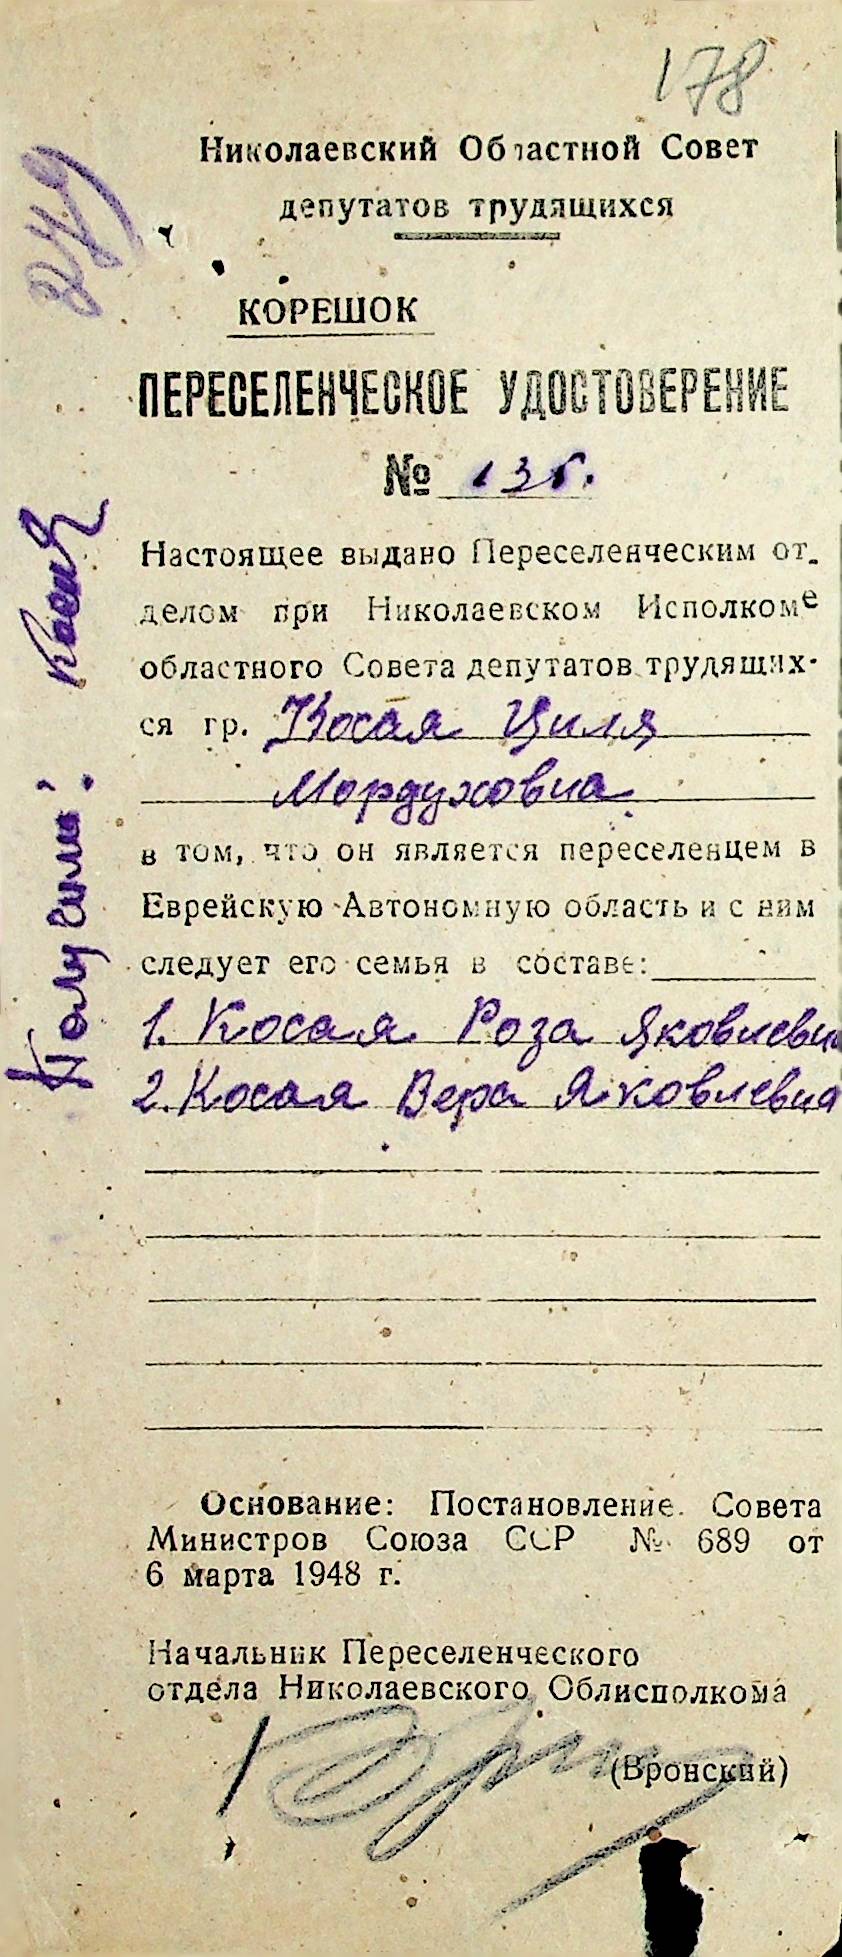 178
279
Николаевский Областной Совет
депутатов трудящихся
КОРЕШОК
ПЕРЕСЕЛЕНЧЕСКОЕ УДОСТОВЕРЕНИЕ
№ 135.
Настоящее выдано Переселенческим от-
делом при Николаевском Исполкоме
областного Совета депутатов трудящих-
ся гр. Косая Циля
Мордуховна
в том, что он является переселенцем в
Еврейскую Автономную область и с ним
следует его семья в составе:
1. Косая Роза Яковлевна
2. Косая Вера Яковлевна
Получила: Косая
Основание: Постановление Совета
Министров Союза ССР № 689 от
6 марта 1948 г.
Начальник Переселенческого
отдела Николаевского Облисполкома
(Вронский)